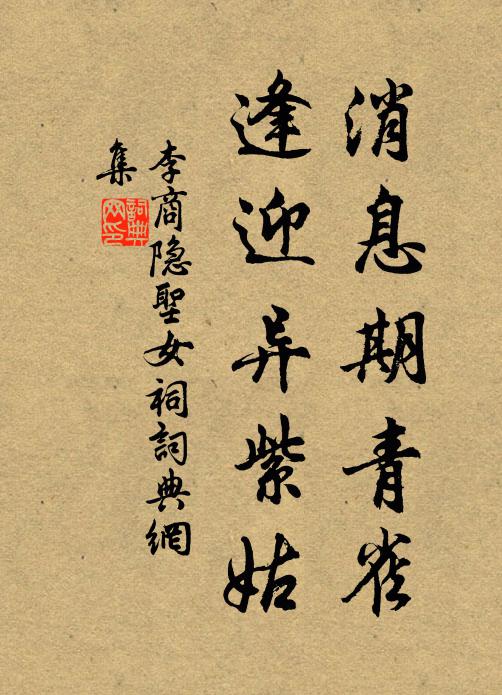 消息期青雀
逢迎异紫姑
李商隐聖女祠詞典網
集
詞典网印